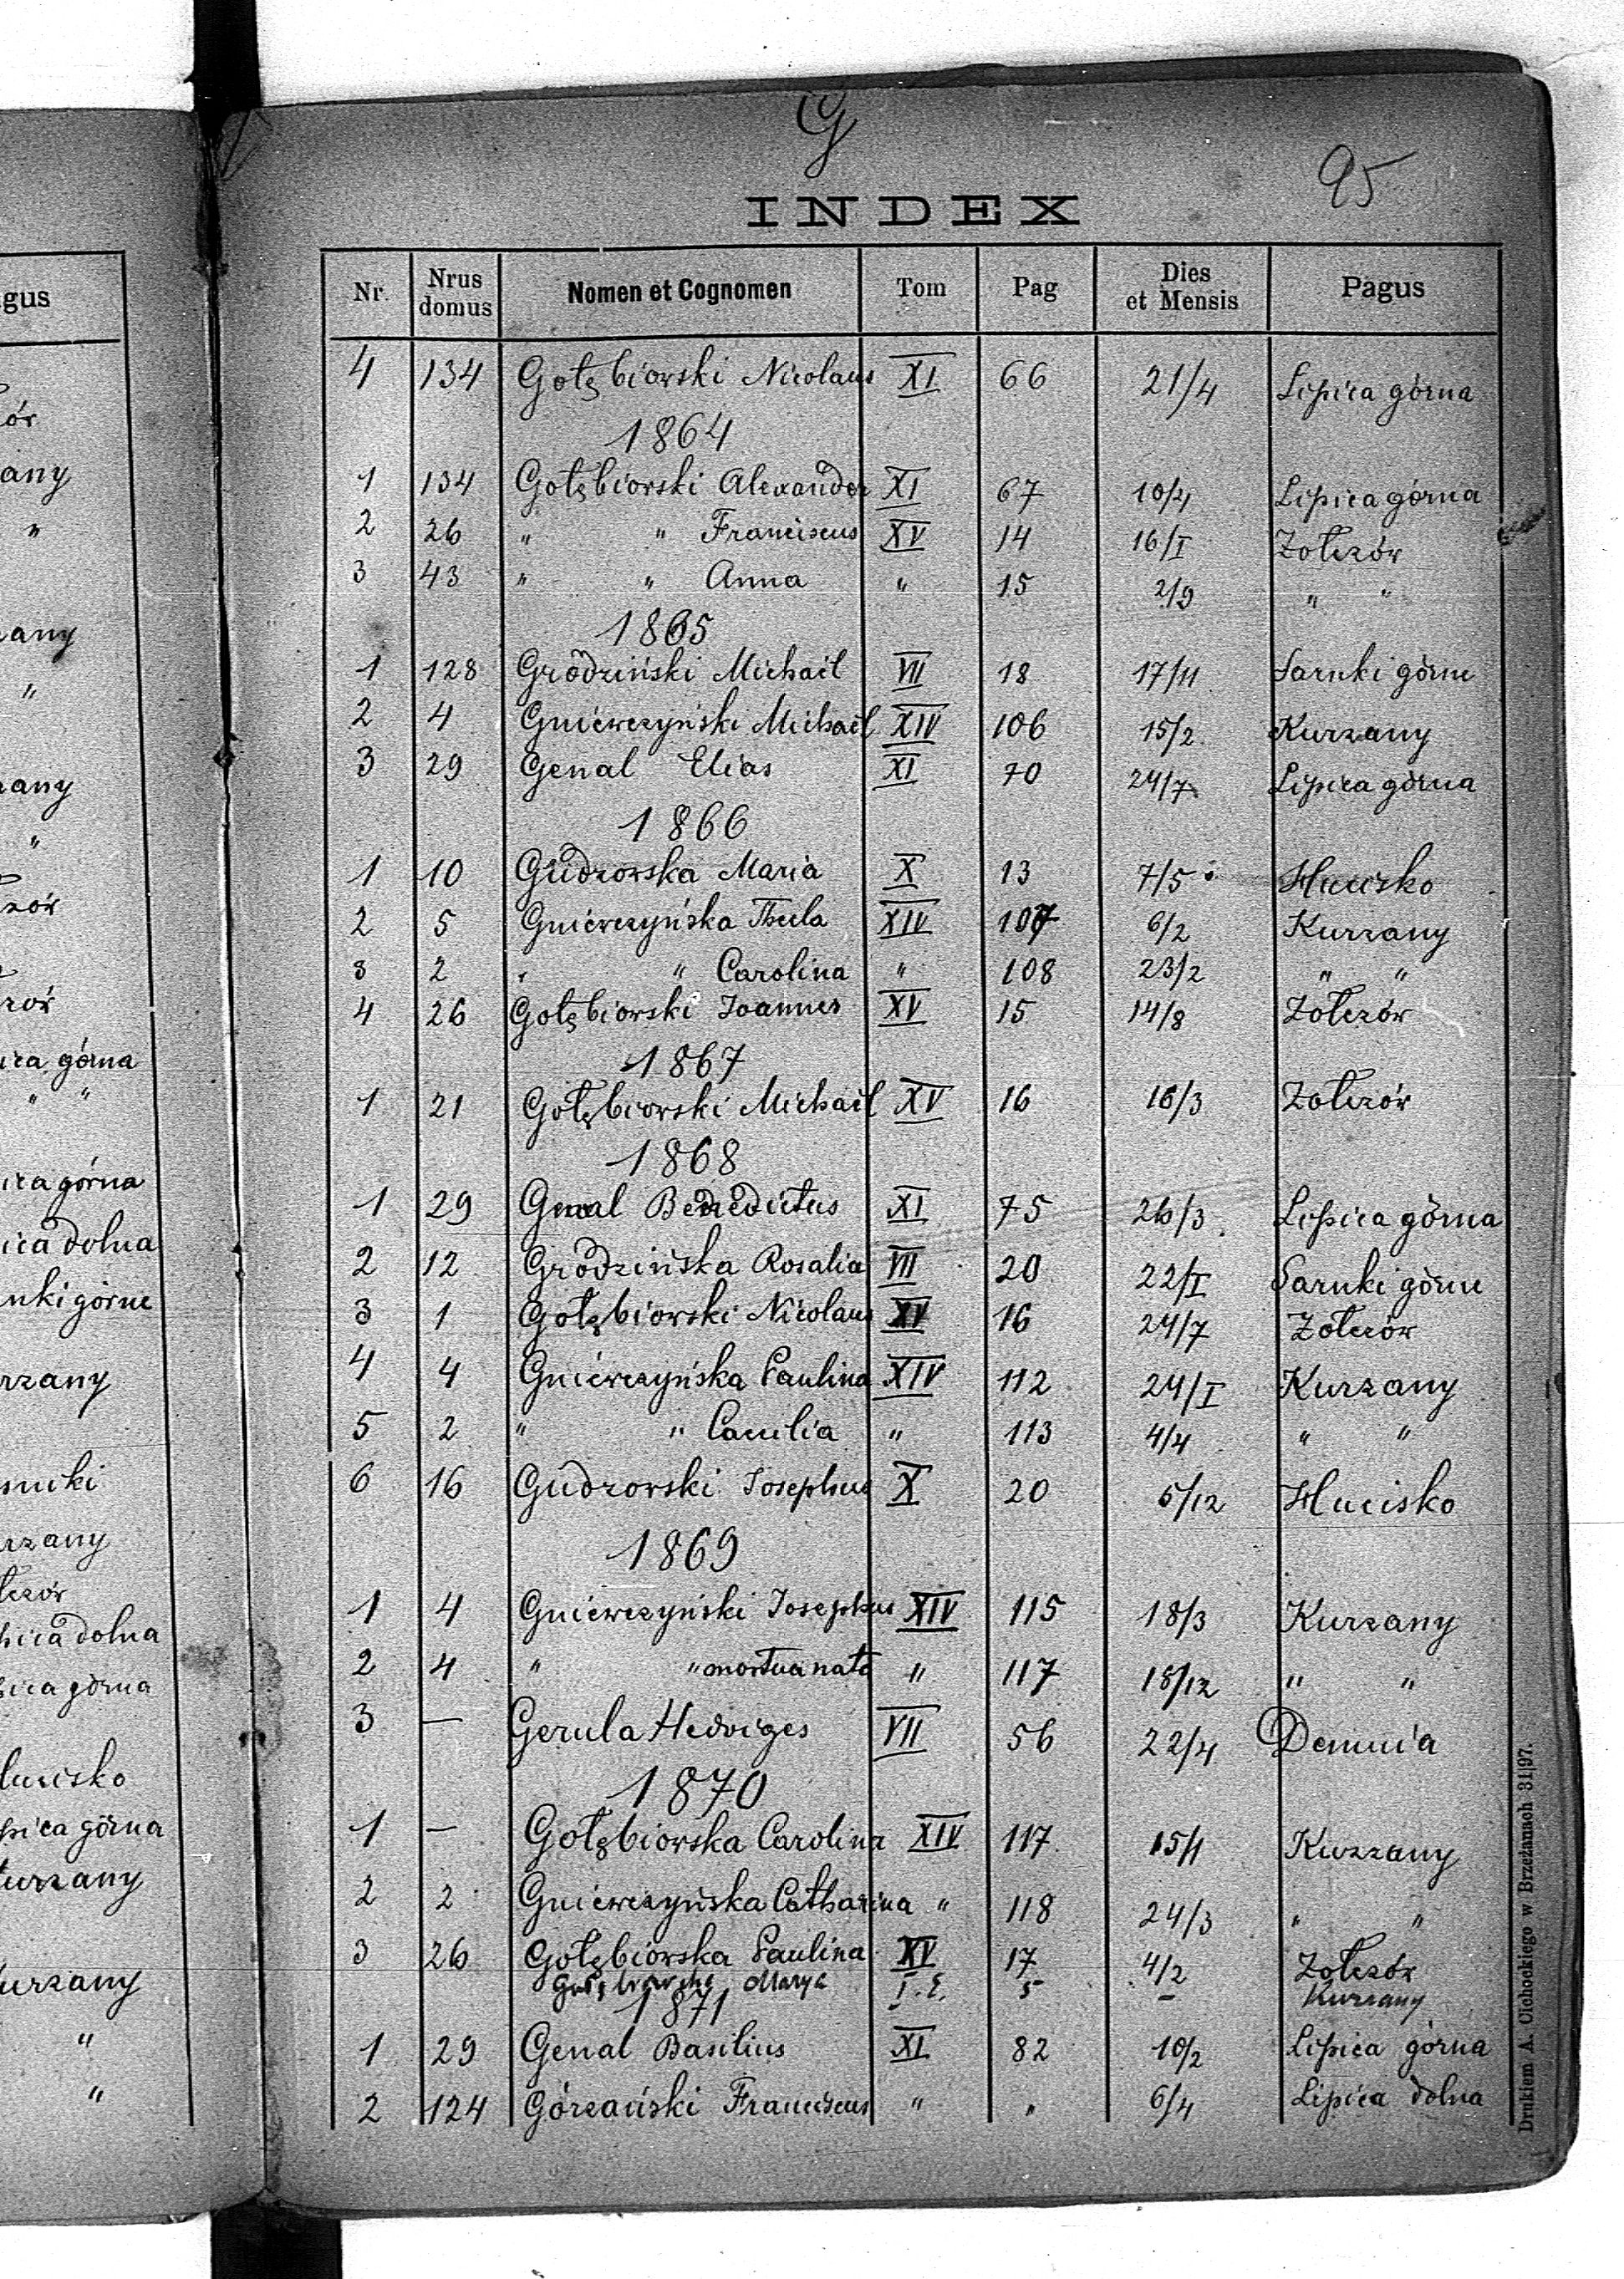 G
95
INDEX
Nr. Nrus domus Nomen et Cognomen Tom Pag Dies et Mensis Pagus
4 134 Gołębiowski Nicolaus XI 66 21/4 Lipica górna
1864
1 134 Gołębiowski Alexander XI 67 10/4 Lipica górna
2 26 " " Franciscus XV 14 16/I Żołczów
3 43 " " Anna " 15 2/9 " "
1865
1 128 Grodziński Michaël VII 18 17/11 Sarnki górne
2 4 Gniewczyński Michaël XIV 106 15/2 Kurzany
3 29 Genal Elias XI 70 24/7 Lipica górna
1866
1 10 Gudzowska Maria X 13 7/5 Hucisko
2 5 Gniewczyńska Thecla XIV 107 6/2 Kurzany
3 2 " " Carolina " 108 23/2 " "
4 26 Gołębiowski Joannes XV 15 14/8 Żołczów
1867
1 21 Gołębiowski Michaël XV 16 16/3 Żołczów
1868
1 29 Genal Benedictus XI 75 26/3 Lipica górna
2 12 Grodzińska Rosalia VII 20 22/I Sarnki górne
3 1 Gołębiowski Nicolaus XV 16 24/7 Żołczów
4 4 Gniewczyńska Paulina XIV 112 24/I Kurzany
5 2 " " Camilia " 113 4/4 " "
6 16 Gudzowski Josephus X 20 5/12 Hucisko
1869
1 4 Gniewczyński Josephus XIV 115 18/3 Kurzany
2 4 " " mortua nata " 117 18/12 " "
3 — Gerula Hedviges VII 56 22/4 Demnia
1870
1 — Gołębiowska Carolina XIV 117 15/1 Kurzany
2 2 Gniewczyńska Catharina " 118 24/3 " "
3 26 Gołębiowska Paulina XV 17 4/2 Żołczów
Gołębiowska Marya 5 — Kurzany
1871
1 29 Genal Basilius XI 82 10/2 Lipica górna
2 124 Górzański Franciscus " " 6/4 Lipica dolna
Drukiem A. Cichockiego w Brzeżanach 31|97.